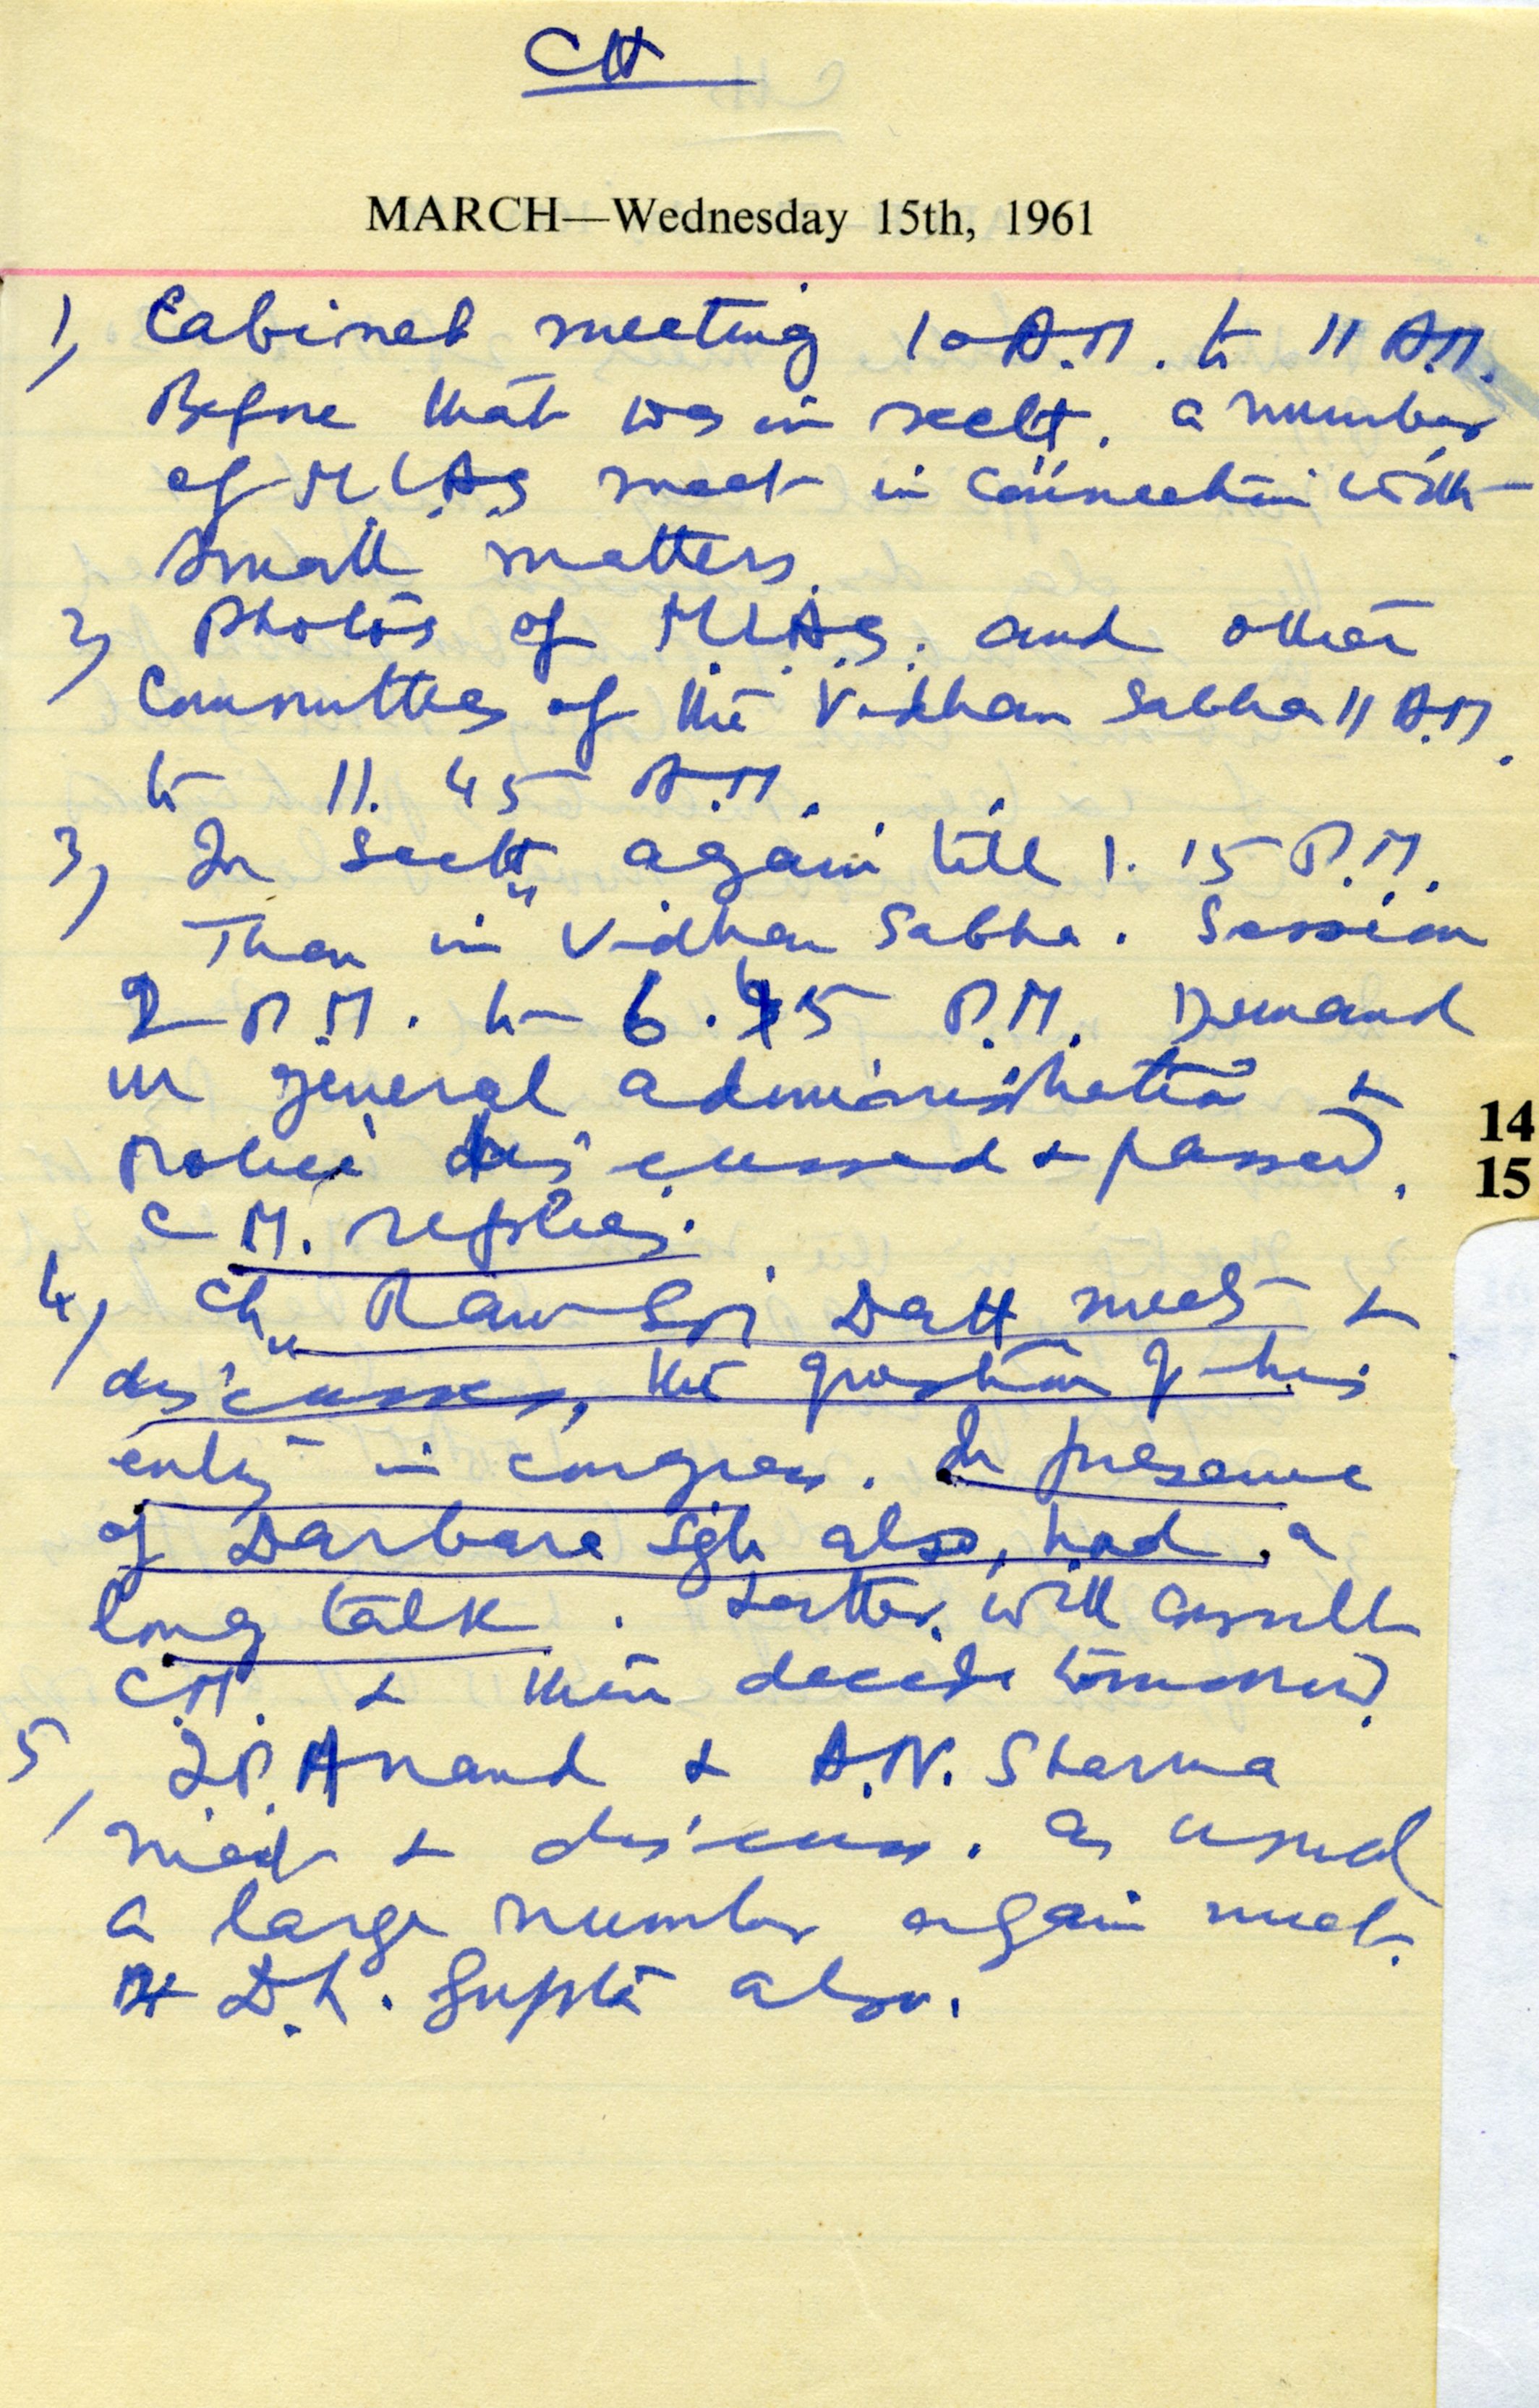 CH
MARCH—Wednesday 15th, 1961
1) Cabinet meeting 10 A.M. to 11 A.M.
Before that was in sectt. a number
of M.L.A.s meet in connection with
small matters.
2) Photos of M.L.A.s. and other
Committees of the Vidhan Sabha 11 A.M.
to 11.45 A.M.
3) In Sectt. again till 1.15 P.M.
Then in Vidhan Sabha. Session
2 P.M. to 6.45 P.M. Demand
on general administration &
Police discussed & passed.
C.M. replies.
4) Ch. Ram Datt meets &
discusses, the question of his
entry in congress. In presence
of Darbara Sgh also, had a
long talk. Latter will consult
C.M. & then decide tomorrow.
5) Anand & A.N. Sharma
meet & discuss. As usual
a large number again meet.
D.L. Gupta also.
14
15